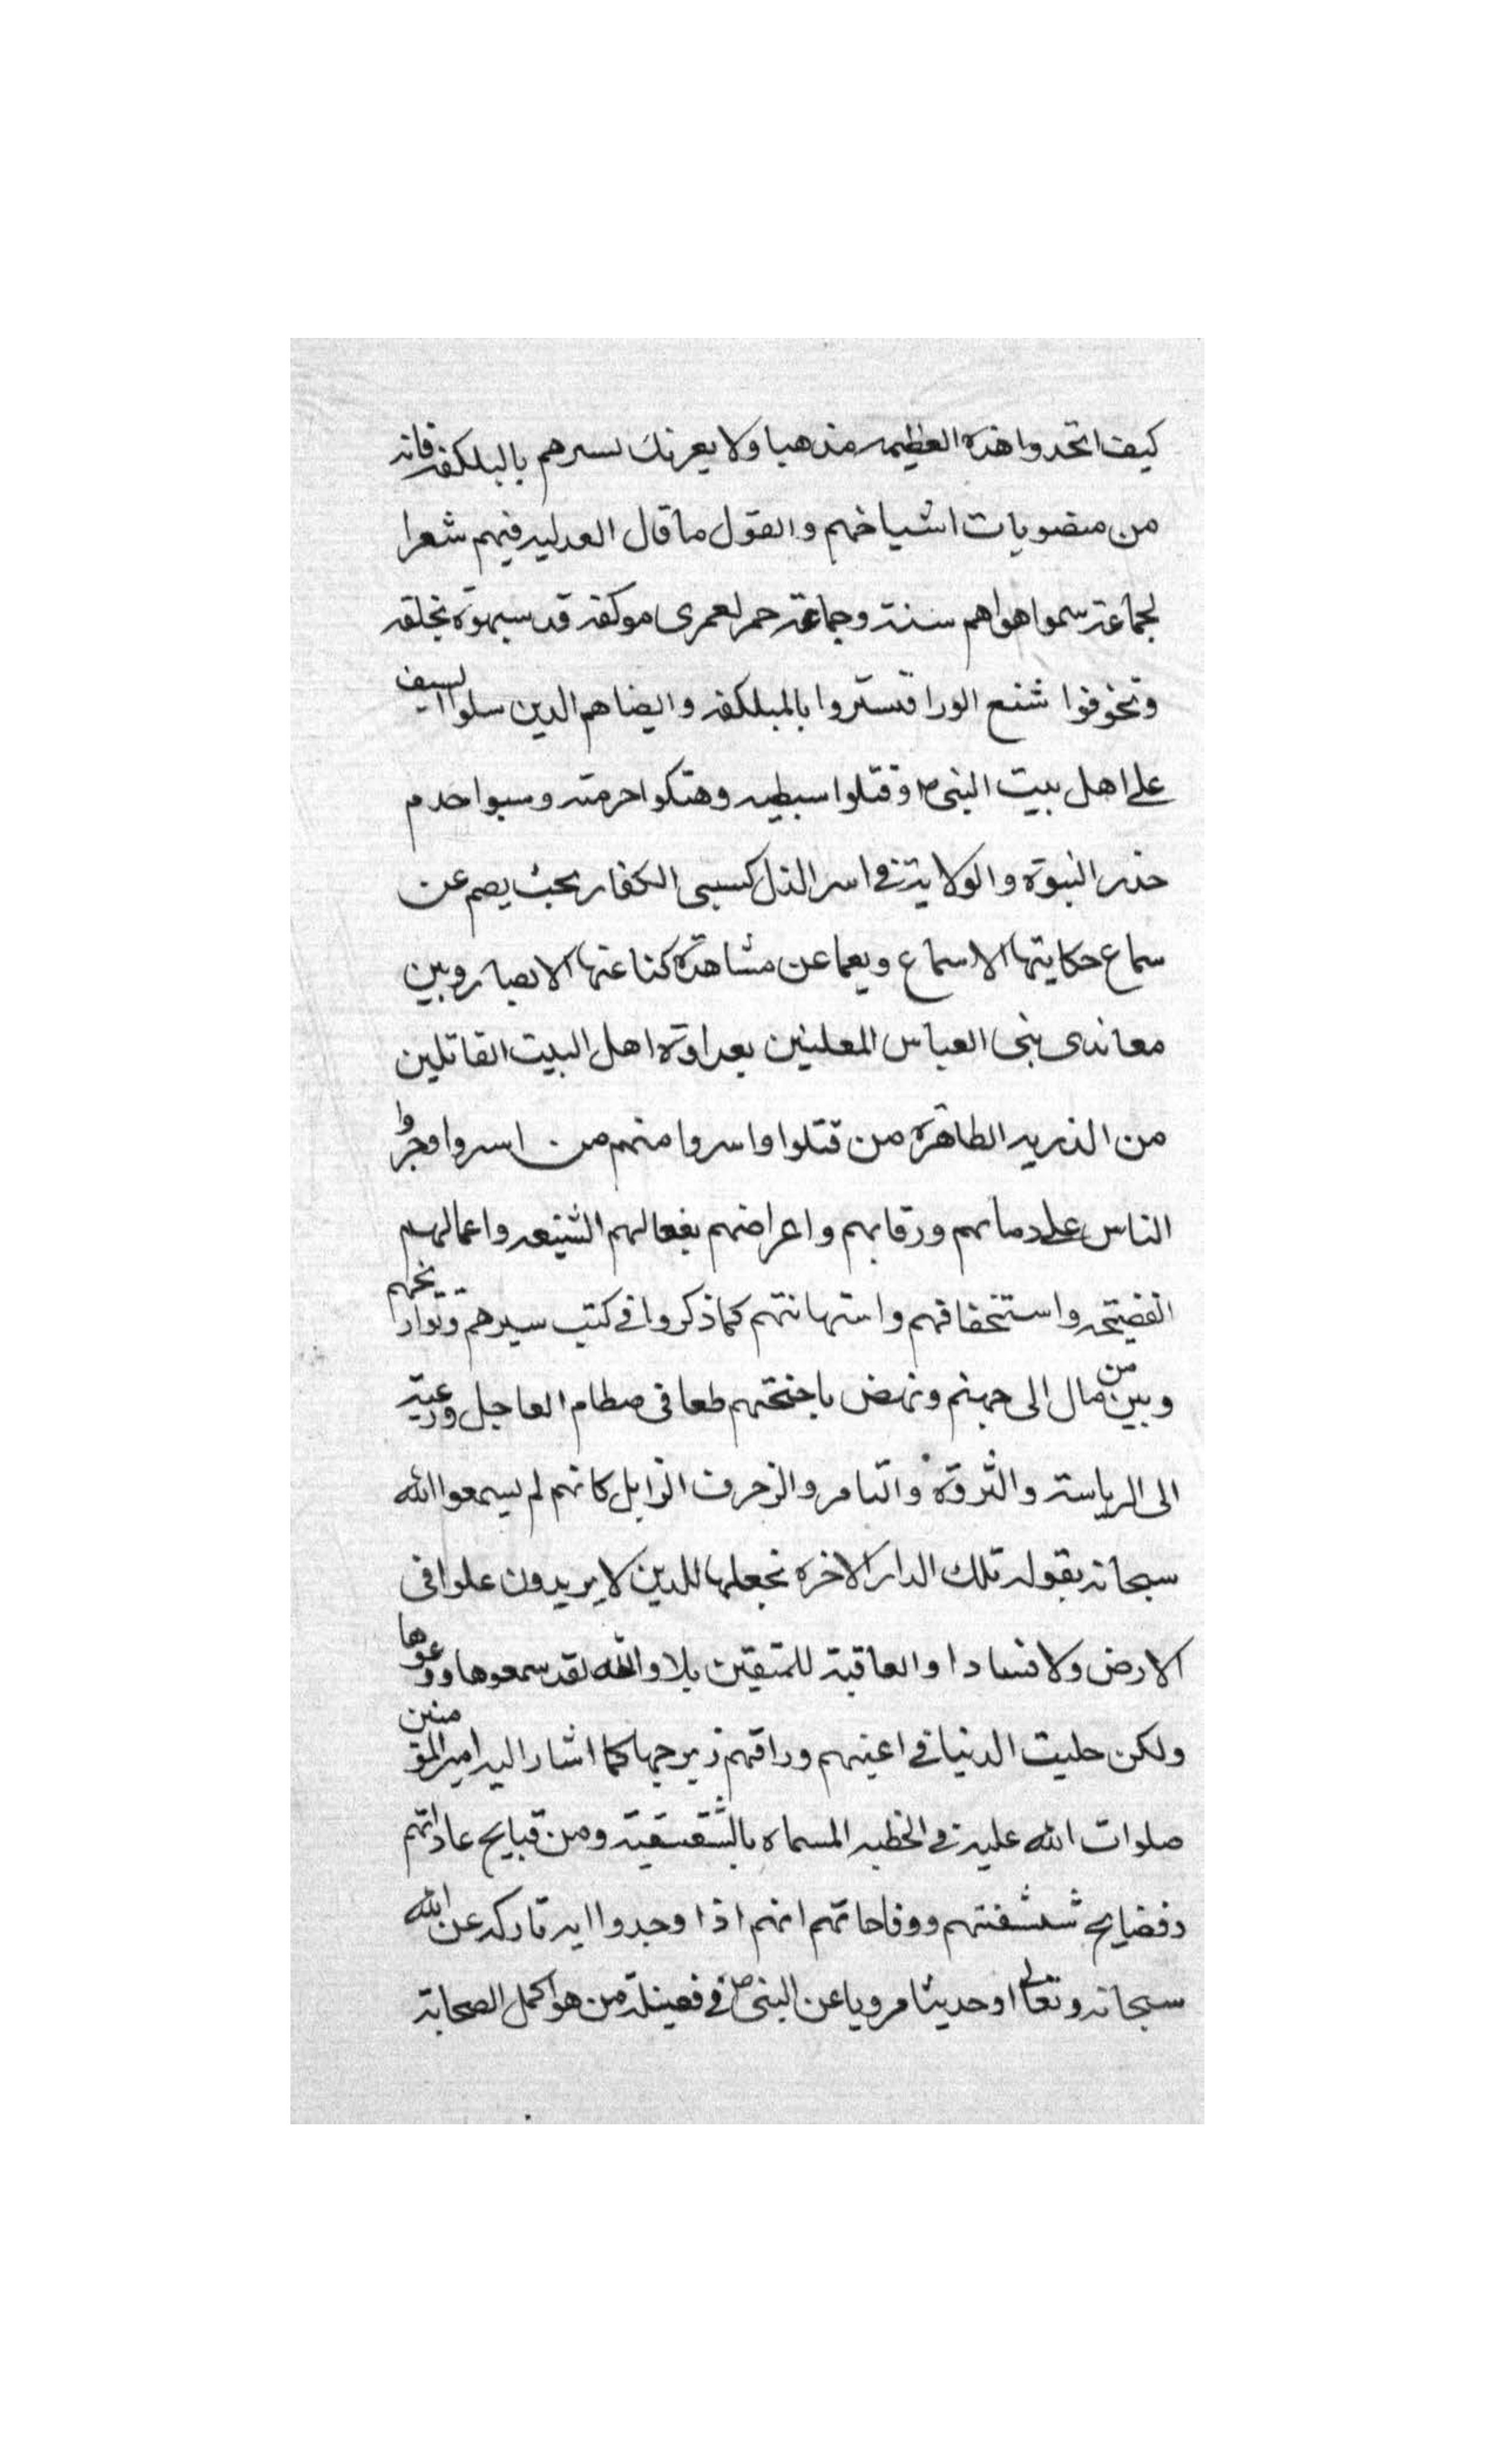 كيف اتخدوا هذه العظيمه مذهبا ولا يغرنك تسترهم بالبلكفه فانه
من منصوبات اشياخهم والقول ما قال العدليه فيهم شعرا
لجماعة سموا هواهم سنة وجماعة حمر لعمرى موكفه قد شبهوه بخلقه
وتخوفوا شنع الورا فتستروا بالبلكفه وايضا هم الدين سلوا السيف
على اهل بيت النبى ص وقتلوا سبطيه وهتكوا حرمته وسبوا حدم
خدر النبوة والولاية في اسر الذل كسبى الكفار بحيث يصم عن
سماع حكايتها الاسماع ويعما عن مشاهدة كناعتها الابصار وبين
معاندى بنى العباس المعلنين بعداوة اهل البيت القاتلين
من الذريه الطاهرة من قتلوا واسروا منهم من اسروا وجروا
الناس على دمائهم ورقابهم واعراضهم بفعالهم الشنيعه واعمالهم
الفضيحه واستخفافهم واستهانتهم كما ذكروا في كتب سيرهم وتواريخهم
وبين من مال الى جهنم ونهض باجنحتهم طمعا فى حطام العاجل ورغبة
الى الرياسة والثروة والتامر والزخرف الزايل كانهم لم يسمعوا الله
سبحانه بقوله تلك الدار الاخره نجعلها للدين لا يريدون علوا فى
الارض ولا فسادا والعاقبة للمتقين بلا والله لقد سمعوها ووعوها
ولكن حليت الدنيا في اعينهم وراقهم زبرجها كما اشار اليه امير المؤمنين
صلوات الله عليه في الخطبه المسماه بالشقشقية ومن قبايح عاداتهم
وفضايح شنشنتهم ووقاحاتهم انهم اذا وجدوا اية تاركه عن الله
سبحانه وتعالى او حديثا مرويا عن النبى ص في فضيلة من هو اكمل الصحابة